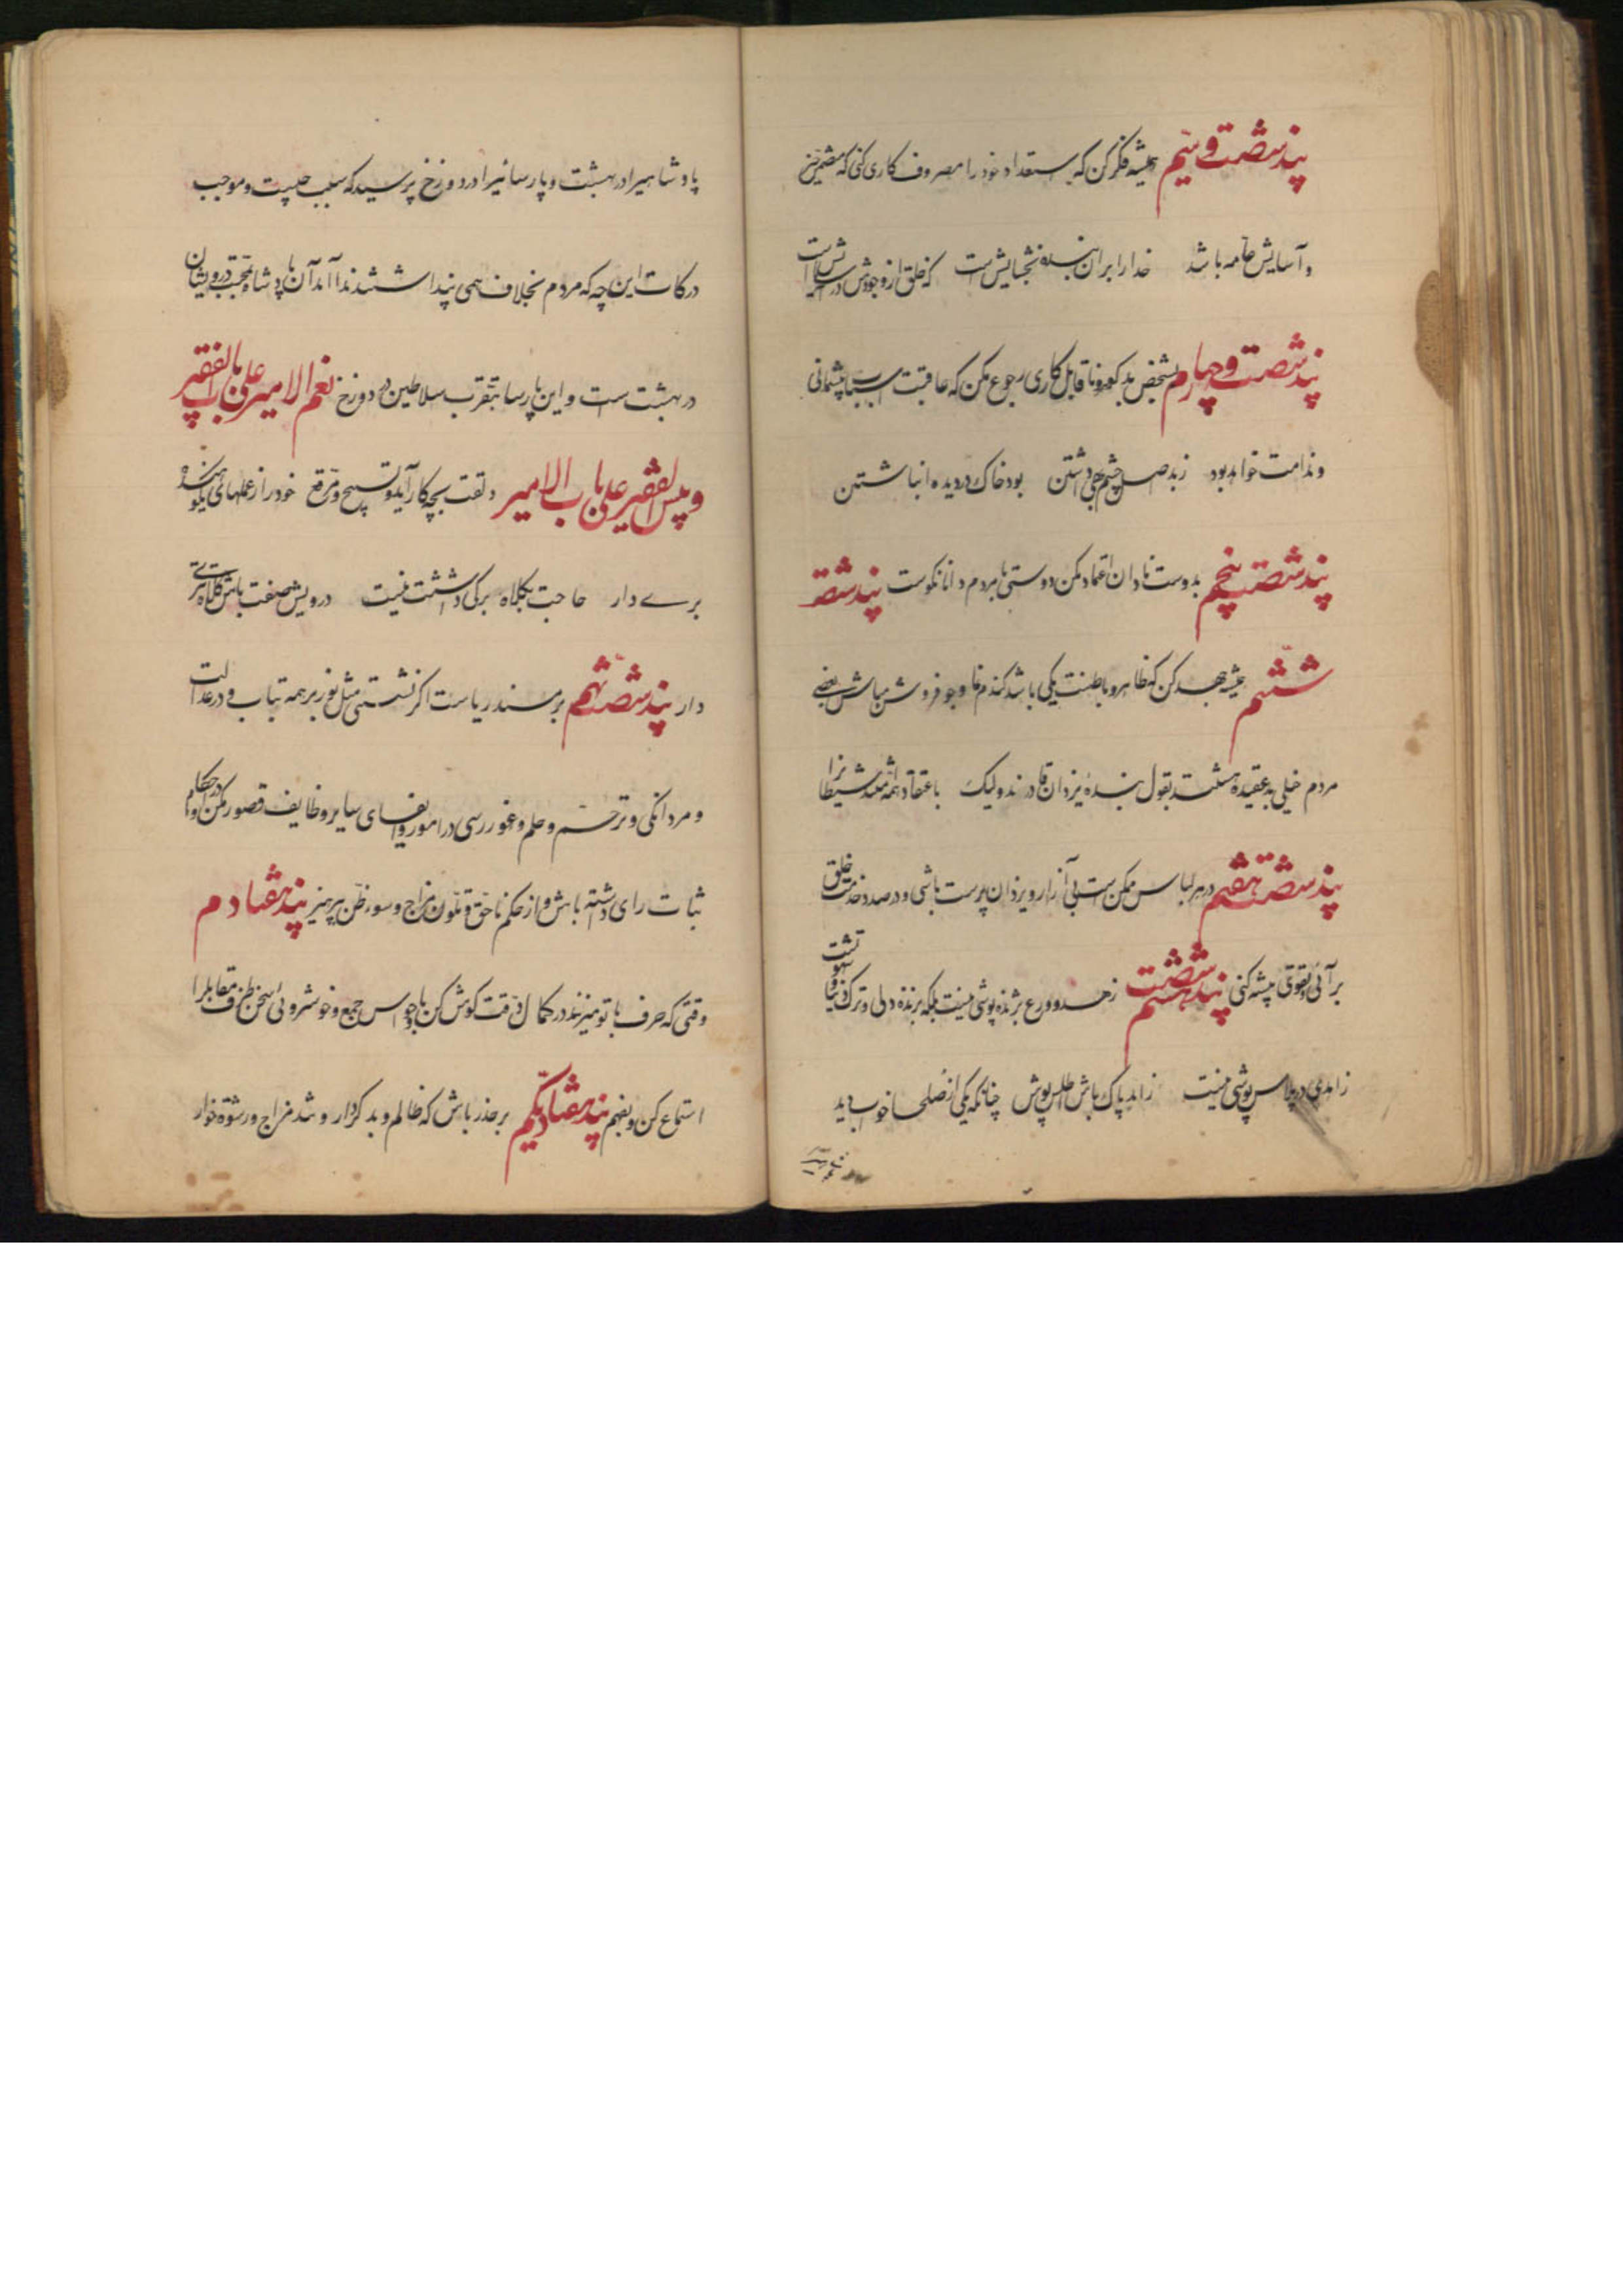 پند شصت و سیم همیشه فکر کن که استعداد خود را مصروف کاری کنی که متضمن خیر
و آسایش عامه باشد خدا را بر آن بنده بخشایش است که خلق از وجودش در آسایش است
پند شصت و چهارم بشخص بدگهر و ناقابل کاری رجوع مکن که عاقبت اسباب پشیمانی
و ندامت خواهد بود ز بد اصل چشم بهی داشتن بود خاک در دیده انباشتن
پند شصت پنجم بدوست نادان اعتماد مکن دوستی با مردم دانا نکوست پند شصت
ششم همیشه جهد کن که ظاهر و باطنت یکی باشد گندم نما و جو فروش مباش بعضی
مردم خیلی بد عقیده هستند بقول بنده یزدان قادرند ولیک باعتقاد همه شیطانرا
پند شصت هفتم در هر لباس ممکن است بی آزار و یزدان پرست باشی و درصدد خدمت خلق
برآئی و تقوی پیشه کنی پند شصت هشتم زهد و ورع بژنده پوشی نیست بلکه بزنده دلی و ترک دنیا و شهوتست
زاهدی در پلاس پوشی نیست زاهد پاک باش و اطلس پوش چنانکه یکی از صلحا خواب دید
پادشاهیرا در بهشت و پارسائیرا در دوزخ پرسید که سبب چیست و موجب
درکات این چه که مردم بخلاف همی پنداشتند ندا آمد آن پادشاه بمحبت درویشان
در بهشت است و این پارسا بتقرب سلاطین در دوزخ نعم الامیر علی باب الفقیر
و بئس الفقیر علی باب الامیر دلقت بچه کار آید و تسبیح و مرقع خود را ز عملهای نکوهیده
بری دار حاجت بکلاه برکی داشتنت نیست درویش صفت باش و کلاه تتری
دار پند شصت نهم بر مسند ریاست اگر نشستی مثل نور بر همه بتاب و در عدالت
و مردانگی و ترحم و حلم و غوررسی در امور و ایفای سایر وظایف قصور مکن و در احکام
ثبات رای داشته باش و از حکم ناحق و تلون مزاج و سوء ظن بپرهیز پند هفتادم
وقتی که حرف با تو میزنند در کمال دقت گوش کن با حواس جمع و خوشروئی سخن طرف مقابلرا
استماع کن و بفهم پند هفتاد یکم برحذر باش که ظالم و بدکردار و تند مزاج و رشوة خوار